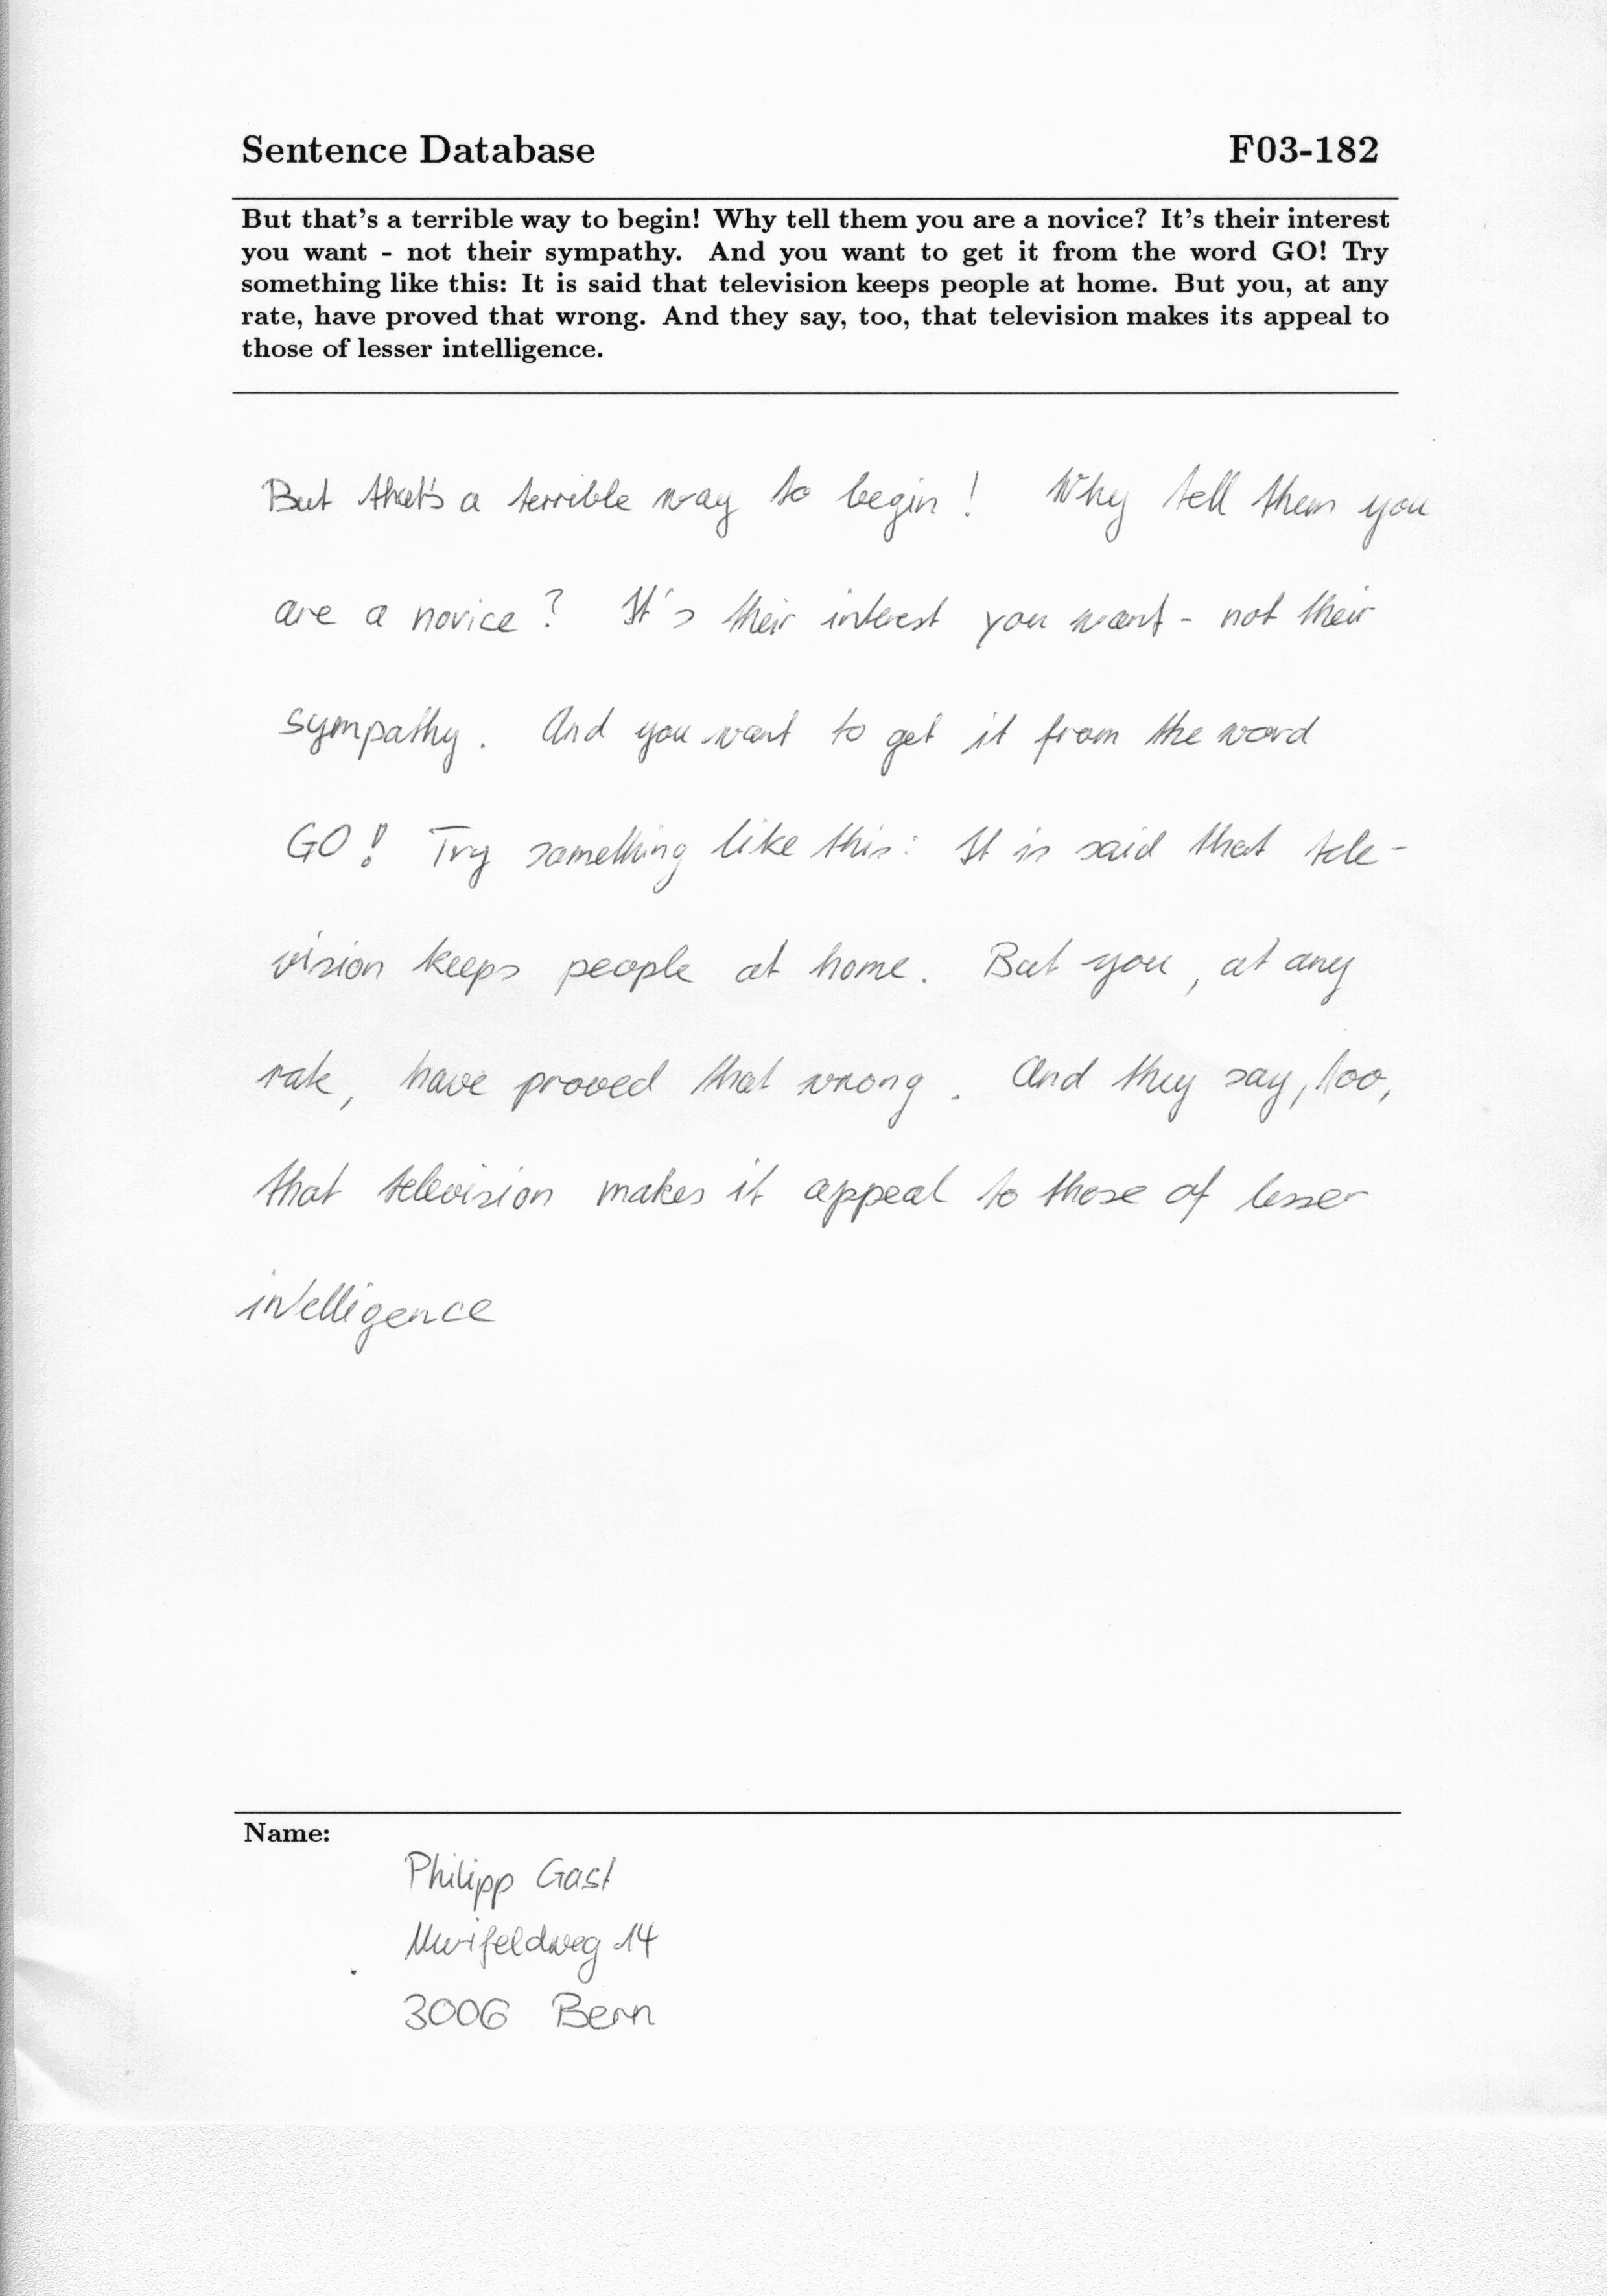 Sentence Database F03-182
But that's a terrible way to begin! Why tell them you are a novice? It's their interest
you want - not their sympathy. And you want to get it from the word GO! Try
something like this: It is said that television keeps people at home. But you, at any
rate, have proved that wrong. And they say, too, that television makes its appeal to
those of lesser intelligence.
But that's a terrible way to begin! Why tell them you
are a novice? It's their interest you want - not their
sympathy. And you want to get it from the word
GO! Try something like this: It is said that tele-
vision keeps people at home. But you, at any
rate, have proved that wrong. And they say, too,
that television makes it appeal to those of lesser
intelligence
Name:
Philipp Gast
Murifeldweg 14
3006 Bern